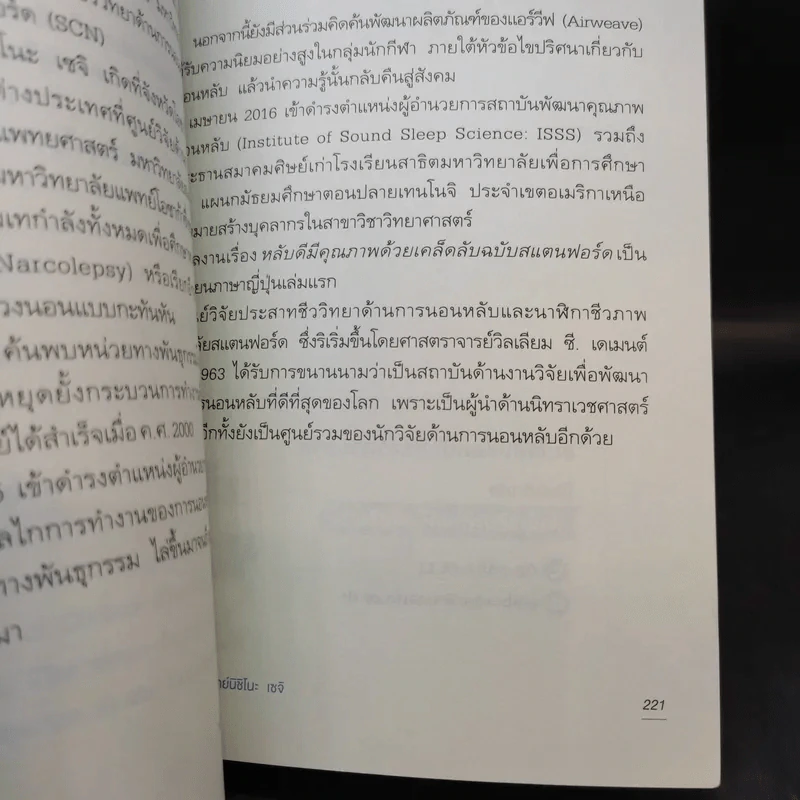 อร์ด (SCN)
โนะ เซจิ เกิดที่จังหวัด
ต่างประเทศที่ศูนย์วิจัย
แพทยศาสตร์ มหาวิทยาลัย
มหาวิทยาลัยแพทย์โอซาก้า
มเทกำลังทั้งหมดเพื่อศึกษา
Narcolepsy) หรือ
วงนอนแบบกะทันหัน
ค้นพบหน่วยทางพันธุกรรม
หยุดยั้งกระบวนการ
ย์ได้สำเร็จเมื่อ ค.ศ. 2000
เข้าดำรงตำแหน่งผู้อำนวย
ลไกการทำงานของการนอน
ทางพันธุกรรม ไล่ขึ้นมาจน
มา
นอกจากนี้ยังมีส่วนร่วมคิดค้นพัฒนาผลิตภัณฑ์ของแอร์วีฟ (Airweave)
รับความนิยมอย่างสูงในกลุ่มนักกีฬา ภายใต้หัวข้อไขปริศนาเกี่ยวกับ
อนหลับ แล้วนำความรู้นั้นกลับคืนสู่สังคม
เมษายน 2016 เข้าดำรงตำแหน่งผู้อำนวยการสถาบันพัฒนาคุณภาพ
อนหลับ (Institute of Sound Sleep Science: ISSS) รวมถึง
ะธานสมาคมศิษย์เก่าโรงเรียนสาธิตมหาวิทยาลัยเพื่อการศึกษา
แผนกมัธยมศึกษาตอนปลายเทนโนจิ ประจำเขตอเมริกาเหนือ
หมายสร้างบุคลากรในสาขาวิชาวิทยาศาสตร์
ลงานเรื่อง หลับดีมีคุณภาพด้วยเคล็ดลับฉบับสแตนฟอร์ด เป็น
ขียนภาษาญี่ปุ่นเล่มแรก
นย์วิจัยประสาทชีววิทยาด้านการนอนหลับและนาฬิกาชีวภาพ
ลัยสแตนฟอร์ด ซึ่งริเริ่มขึ้นโดยศาสตราจารย์วิลเลียม ซี. เดเมนต์
1963 ได้รับการขนานนามว่าเป็นสถาบันด้านงานวิจัยเพื่อพัฒนา
ารนอนหลับที่ดีที่สุดของโลก เพราะเป็นผู้นำด้านนิทราเวชศาสตร์
อีกทั้งยังเป็นศูนย์รวมของนักวิจัยด้านการนอนหลับอีกด้วย
ทย์นิชิโนะ เซจิ
221